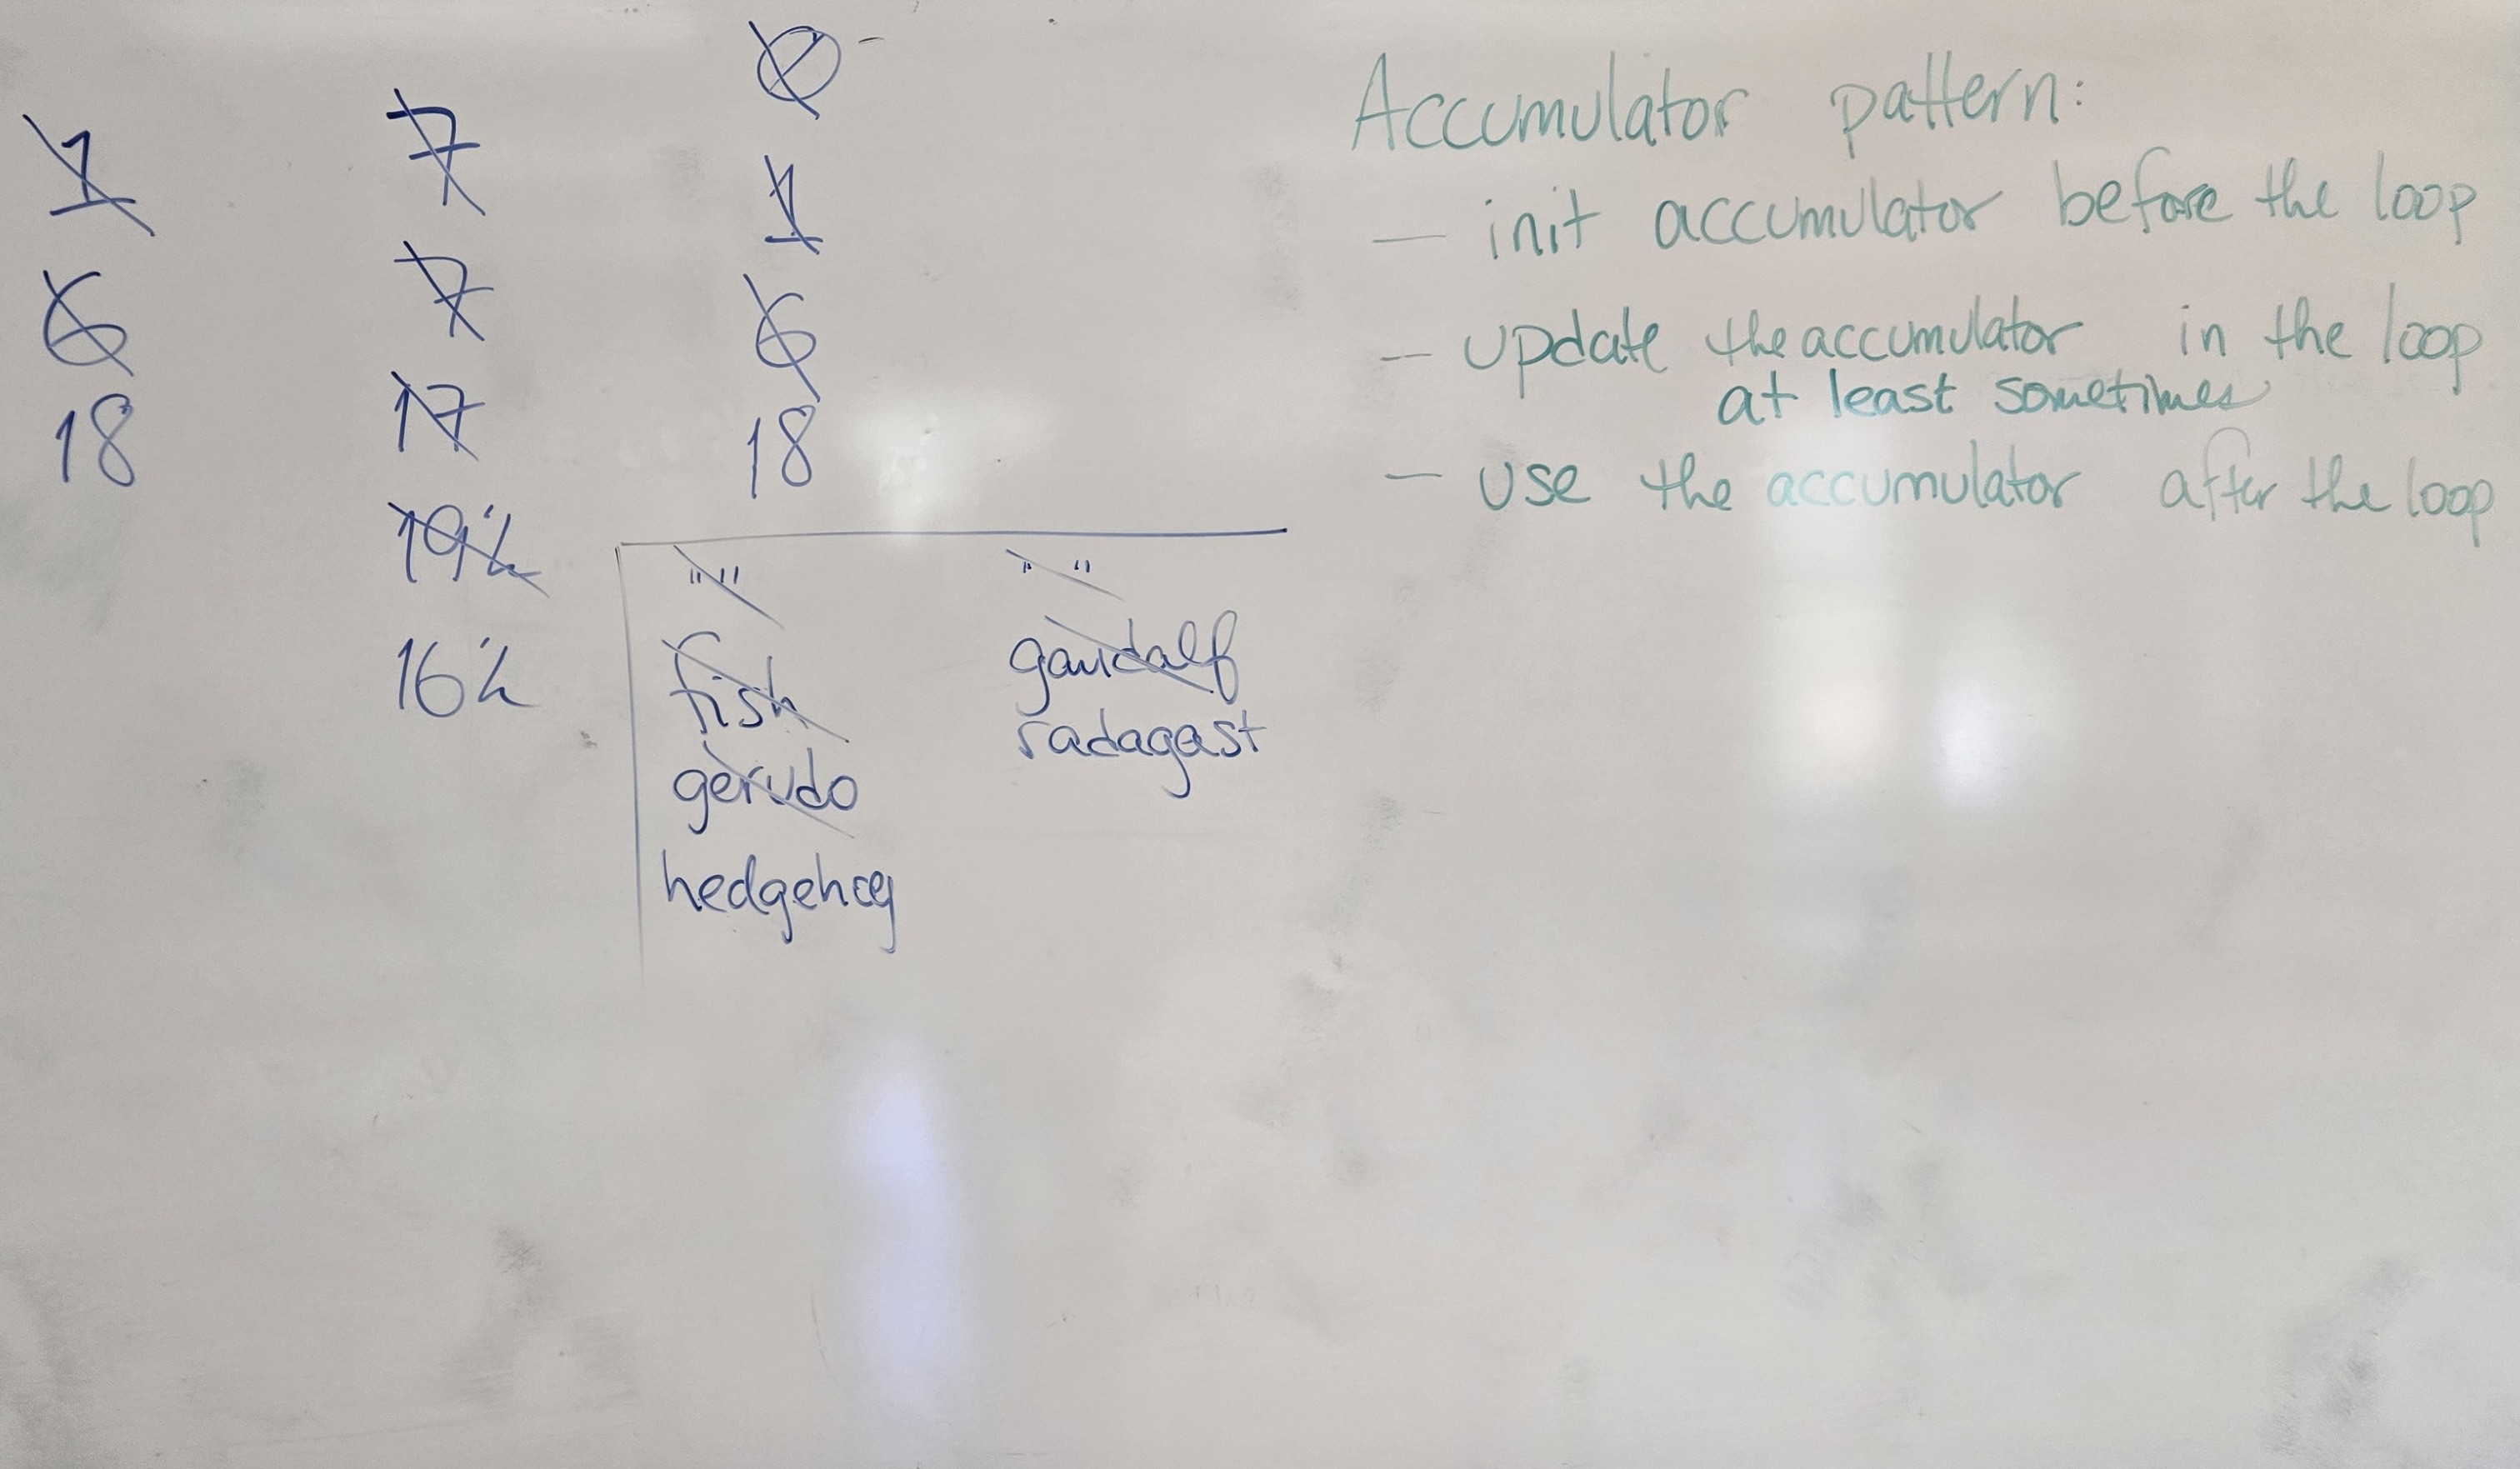 1
6
18
7
7
17
19½
16½
0
1
6
18
""
fish
gerudo
hedgehog
" "
gandalf
radagast
Accumulator pattern:
— init accumulator before the loop
— update the accumulator in the loop
at least sometimes
— use the accumulator after the loop